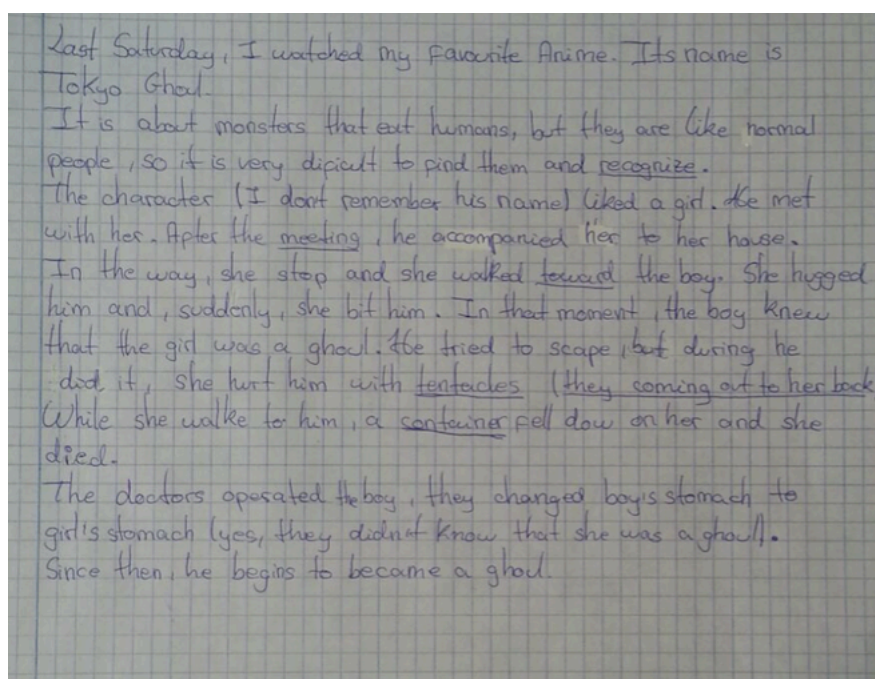 Last Saturday, I watched my favourite Anime. Its name is
Tokyo Ghoul.
It is about monsters that eat humans, but they are like normal
people, so it is very dificult to find them and recognize.
The character (I don't remember his name) liked a girl. He met
with her. After the meeting, he accompanied her to her house.
In the way, she stop and she walked toward the boy. She hugged
him and, suddenly, she bit him. In that moment, the boy knew
that the girl was a ghoul. He tried to scape, but during he
did it, she hurt him with tentacles (they coming out to her back
While she walke to him, a container fell dow on her and she
died.
The doctors operated the boy, they changed boy's stomach to
girl's stomach (yes, they didn't know that she was a ghoul).
Since then, he begins to became a ghoul.